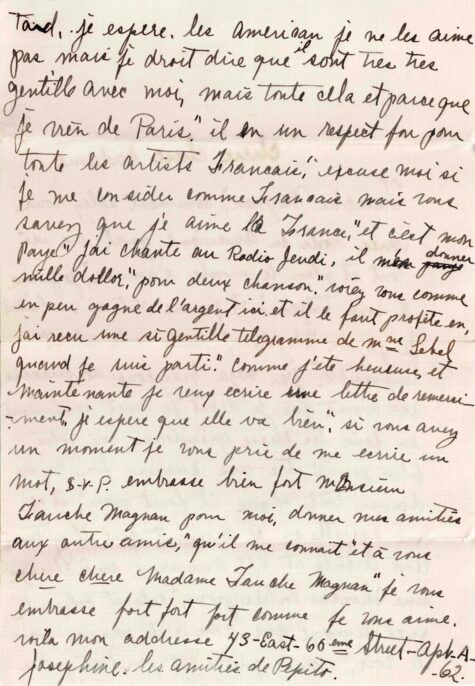 tard, je espere. les american je ne les aime
pas mais je droit dire que il sont tres tres
gentills avec moi, mais toute cella et parce que
je vien de Paris." il en un respect fou pour
toute les artists Francais," excuse moi si
je me consider comme Francais mais vous
savez que j'e aime la France," et c'est mon
Paye" j'ai chante au Radio Jeudi, il m'on donner
mille dollor," pour deux chanson." voiez vous comme
en peu gagne de l'argent ici et il le faut profite en,
j'ai recu une si gentille telegramme de mme Lebel
quand je suis parti." comme j'ete heureuse, et
maintenante je veux ecrire une lettre de remersi-
-ment, je espere que elle va bien," si vous avez
un moment je vous prie de me ecrire un
mot, s-v-P. embrasse bien fort monsieur
Tauche Magnan pour moi, donner mes amitiés
aux autre amis," qu'il me connait" et à vous
chere chere Madame Tauche Magnan" je vous
embrasse fort fort fort comme je vous aime.
voila mon addresse 43-East-66 eme Street-Apt-A-
-62.
Josephine. les amities de Pepito.